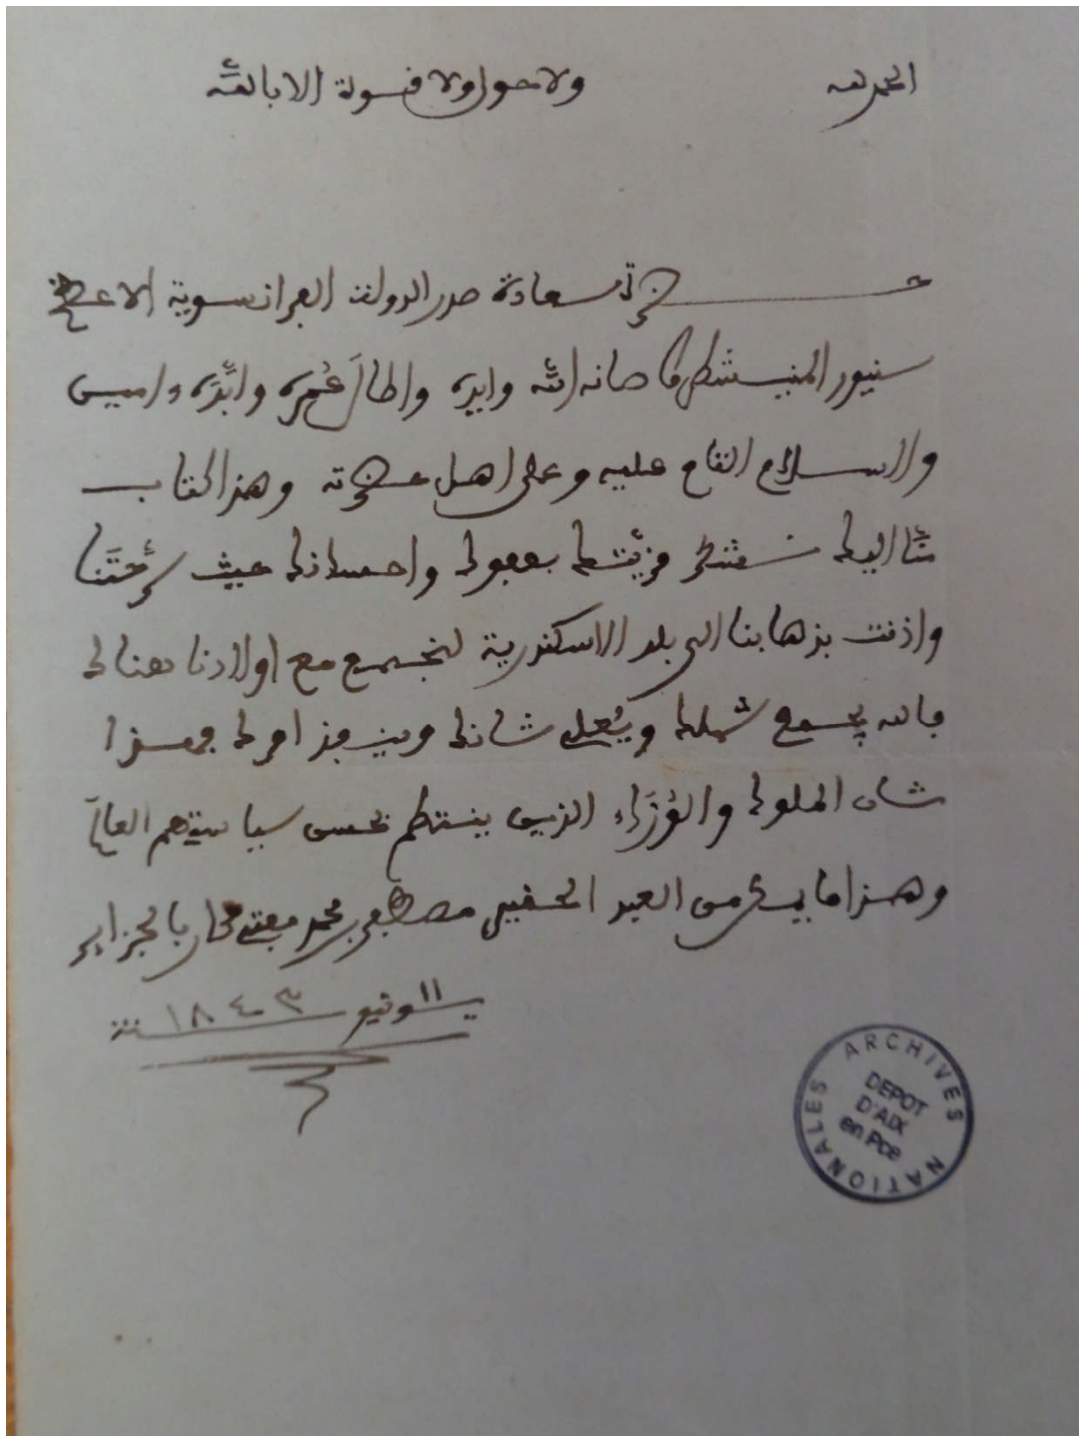 الحمد لله ولا حول ولا قوة الا بالله
حضرة سعادة صدر الدولت الفرانسوية الاعظم
سنيور المنيسطر صانه الله وايده واطال عُمره وابَّده ءاميين
والسلام التام عليه وعلى اهل حضرته وهذا الكتاب
منَّا اليك نشكر مزيَّتك بفعولك واحسانك حيث سرَّحتَنا
واذنت بذهابنا الى بلد الاسكندرية لنجتمع مع اولادنا هنالك
فالله يجمع شملك ويُعلي شانك وينفذ امرك فهذا
شان الملوك والوُزَراء الذين ينتظم بحسن سياستهم العالم
وهذا ما به من العبد الحقير مصطفى بن محمد مفتي كان بالجزاير
١١ يونيو سنة ١٨٤٣
ARCHIVES NATIONALES
DEPOT
D'AIX
en Pce